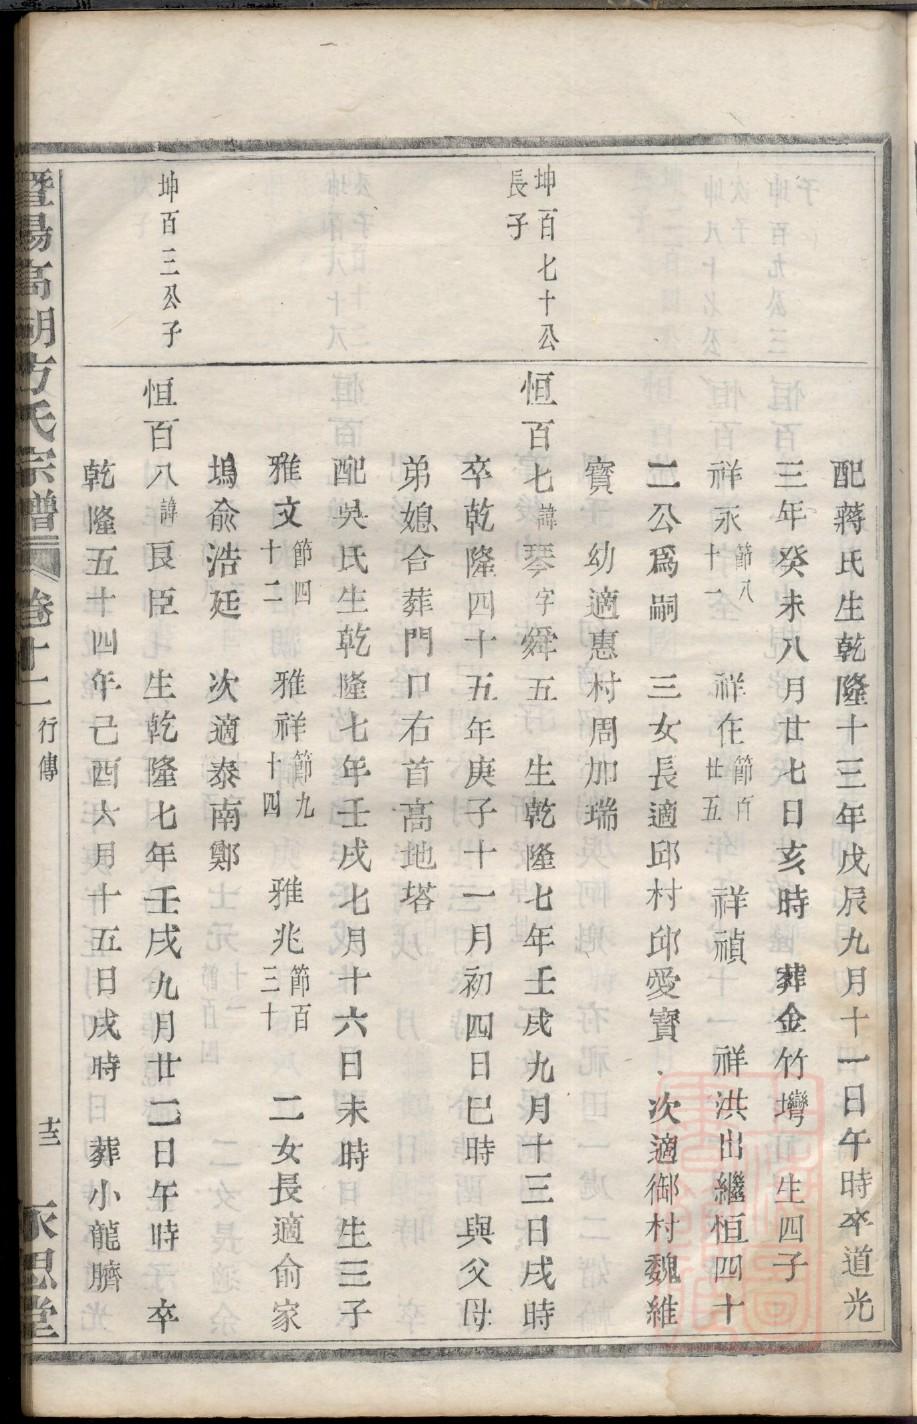 配蔣氏生乾隆十三年戊辰九月十一日午時卒道光
三年癸未八月廿七日亥時 葬金竹灣 生四子
祥永節八十一 祥在節百廿五 祥禎 祥洪出繼恒四十
二公爲嗣 三女長適邱村邱愛寶 次適御村魏維
寶 幼適惠村周加瑞
坤百七十公長子
恒百七諱琴字舜五 生乾隆七年壬戌九月十三日戌時
卒乾隆四十五年庚子十一月初四日巳時 與父母
弟媳合葬門口右首高地塔
配吳氏生乾隆七年壬戌七月十六日未時 生三子
雅文節四十二 雅祥節九十四 雅兆節百三十 二女長適俞家
塢俞浩廷 次適泰南鄭
坤百三公子
恒百八諱良臣 生乾隆七年壬戌九月廿二日午時 卒
乾隆五十四年己酉六月十五日戌時 葬小龍臍
暨陽高湖方氏宗譜 卷十二 行傳 十三 永思堂